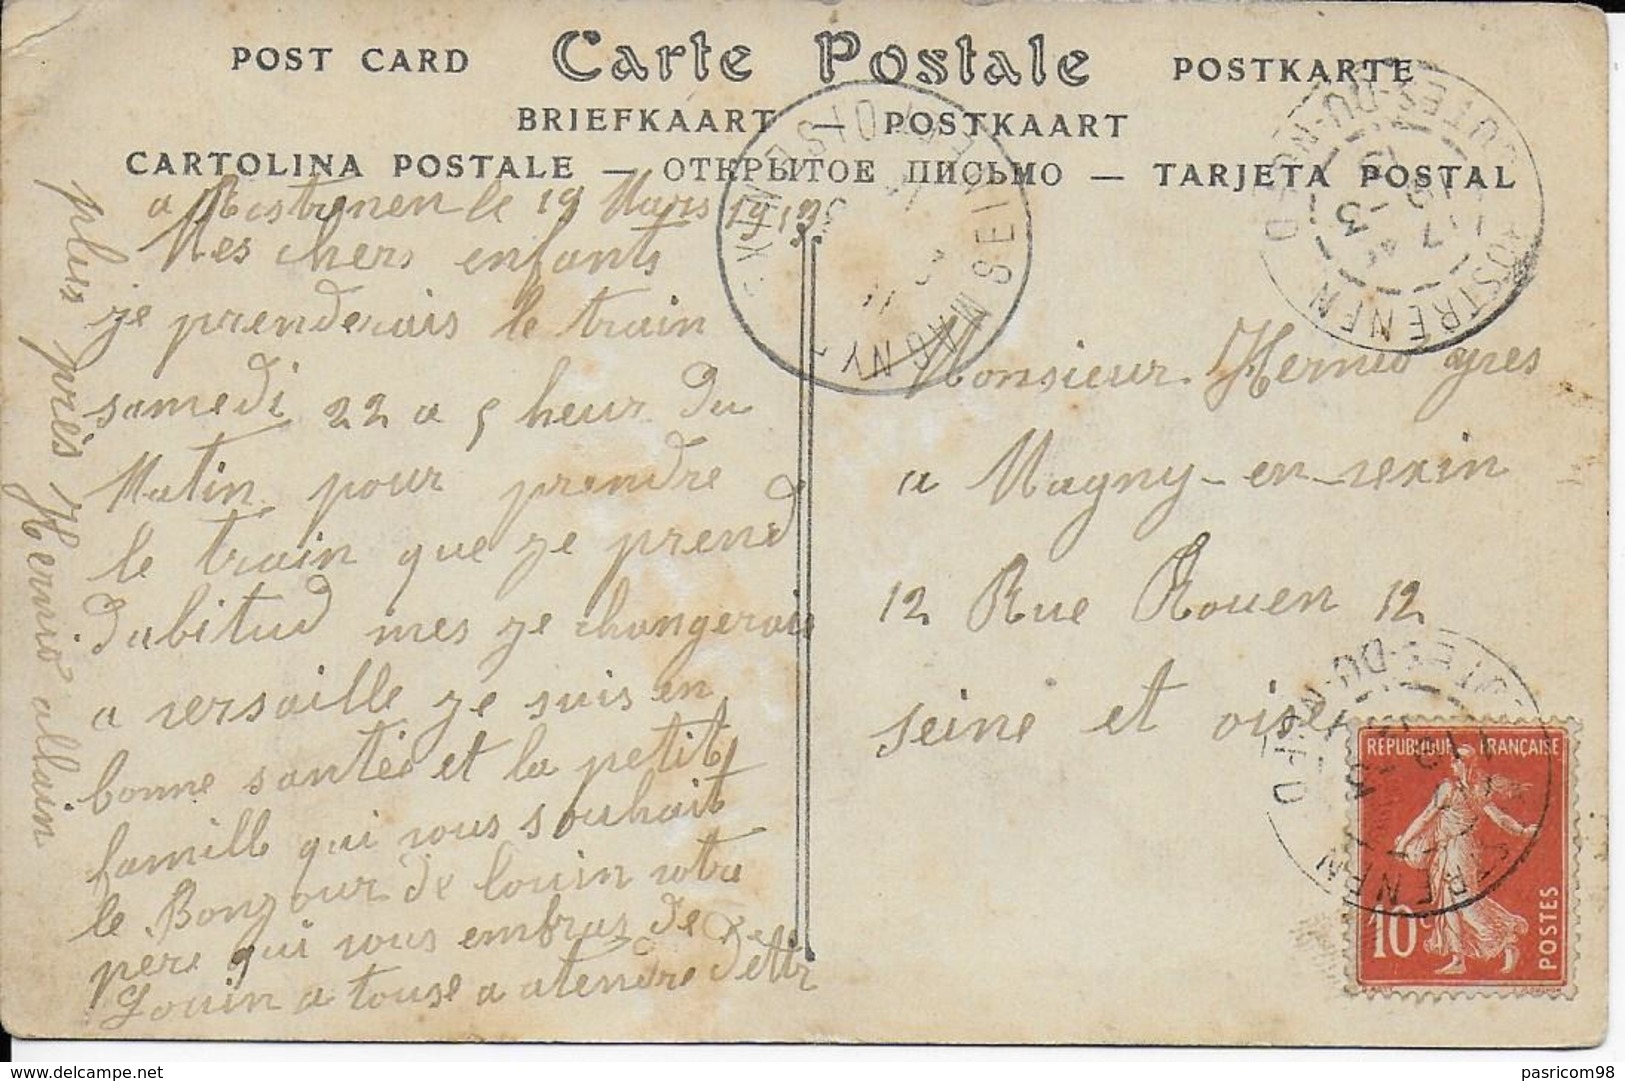 POST CARD Carte Postale POSTKARTE
BRIEFKAART — POSTKAART
CARTOLINA POSTALE — ОТКРЫТОЕ ПИСЬМО — TARJETA POSTAL
a Rostrenen le 19 Mars 1913
Mes chers enfants
je prenderais le train
samedi 22 a 5 heur du
Matin pour prendre
le train que je prend
dabitud mes je changerais
a versaille je suis en
bonne santée et la petit
famille qui vous souhait
le Bonjour de louin votre
pere qui vous embras de
Louin a touse a atendre dettr
plus près Hernio allain
Monsieur Hernio
a Magny-en-vexin
12 Rue Rouen 12
seine et oise
MAGNY SEINE
ROSTRENEN
CÔTES-DU-NORD
RÉPUBLIQUE FRANÇAISE
10c POSTES
pasricom98